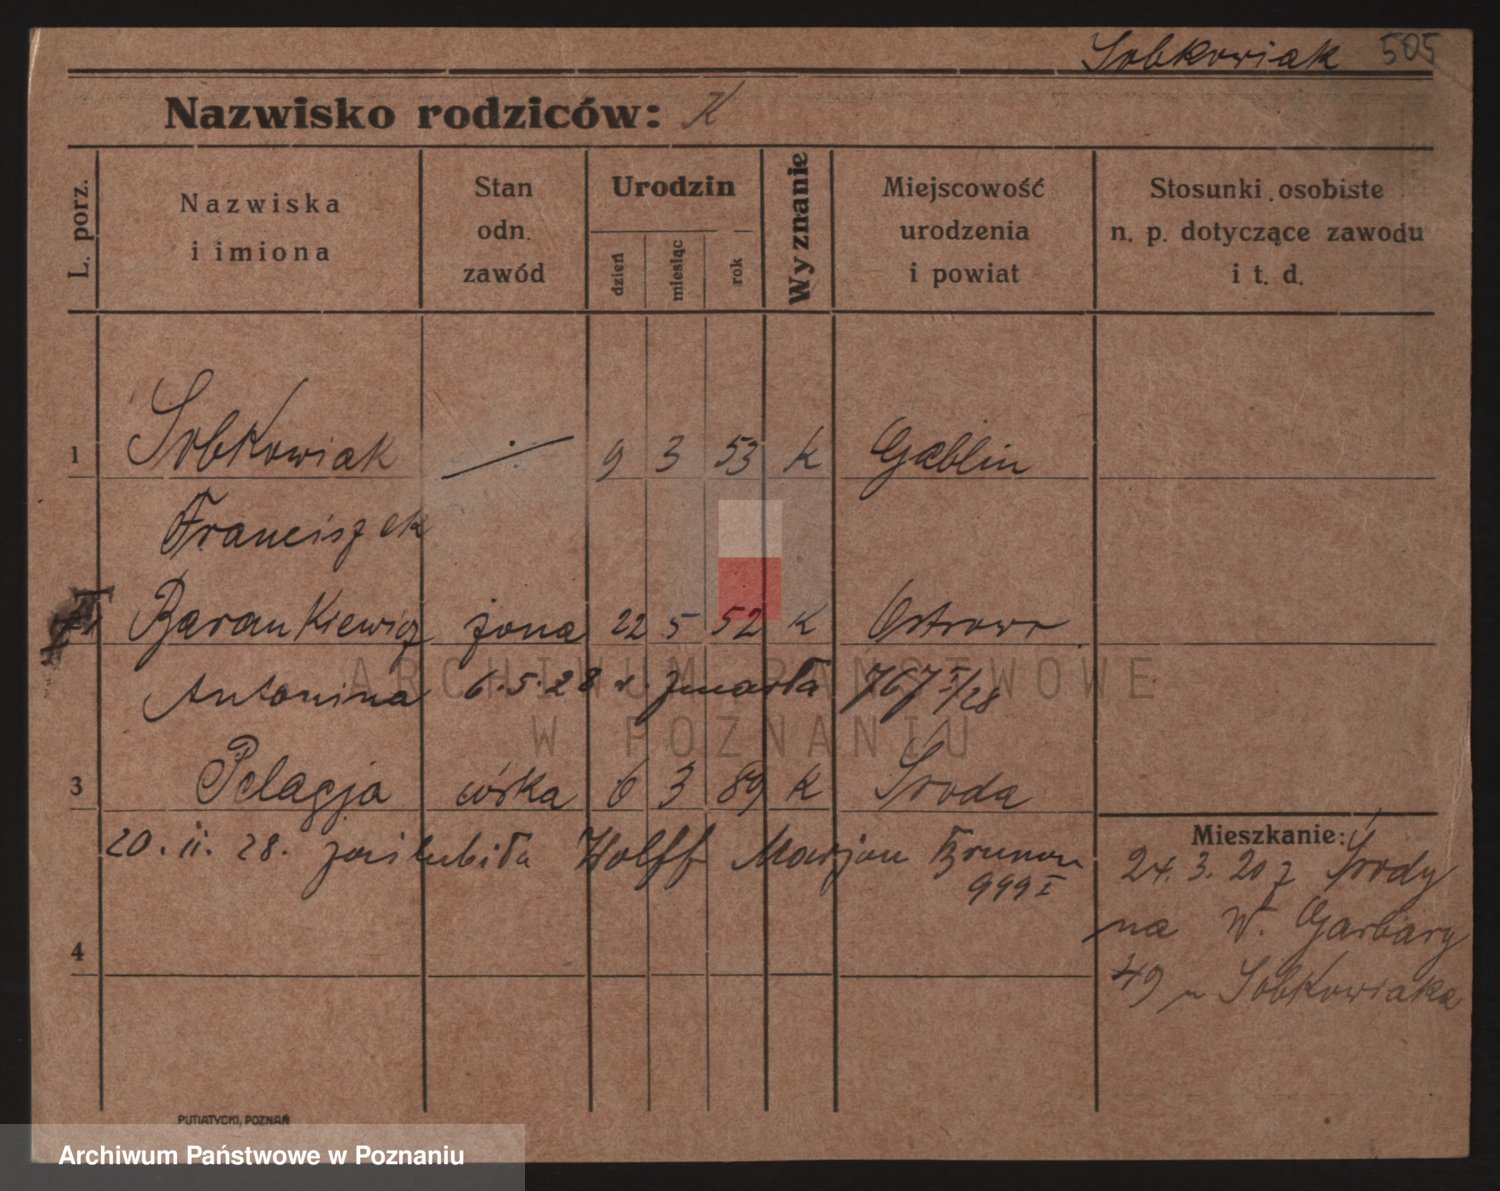 Sobkowiak 505
Nazwisko rodziców: K
L. porz.
Nazwiska
i imiona
Stan
odn.
zawód
Urodzin
dzień
miesiąc
rok
Wyznanie
Miejscowość
urodzenia
i powiat
Stosunki osobiste
n. p. dotyczące zawodu
i t. d.
1 Sobkowiak 9 3 53 K Gæblin
Franciszek
Barankiewicz żona 22 5 52 K Ostrowo
Antonina 6.5.28 r. zmarła 767 I/28
3 Pelagja córka 6 3 89 K Środa
20. II. 28. zaślubiła Wolff Marjan Brunon
999 I
4
Mieszkanie:
24. 3. 20 z Środy
na W. Garbary
49 u Sobkowiaka
PUTIATYCKI, POZNAŃ
ARCHIWUM PAŃSTWOWE
W POZNANIU
Archiwum Państwowe w Poznaniu